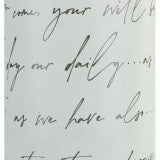 come, your will
day our daily...
as we have also...